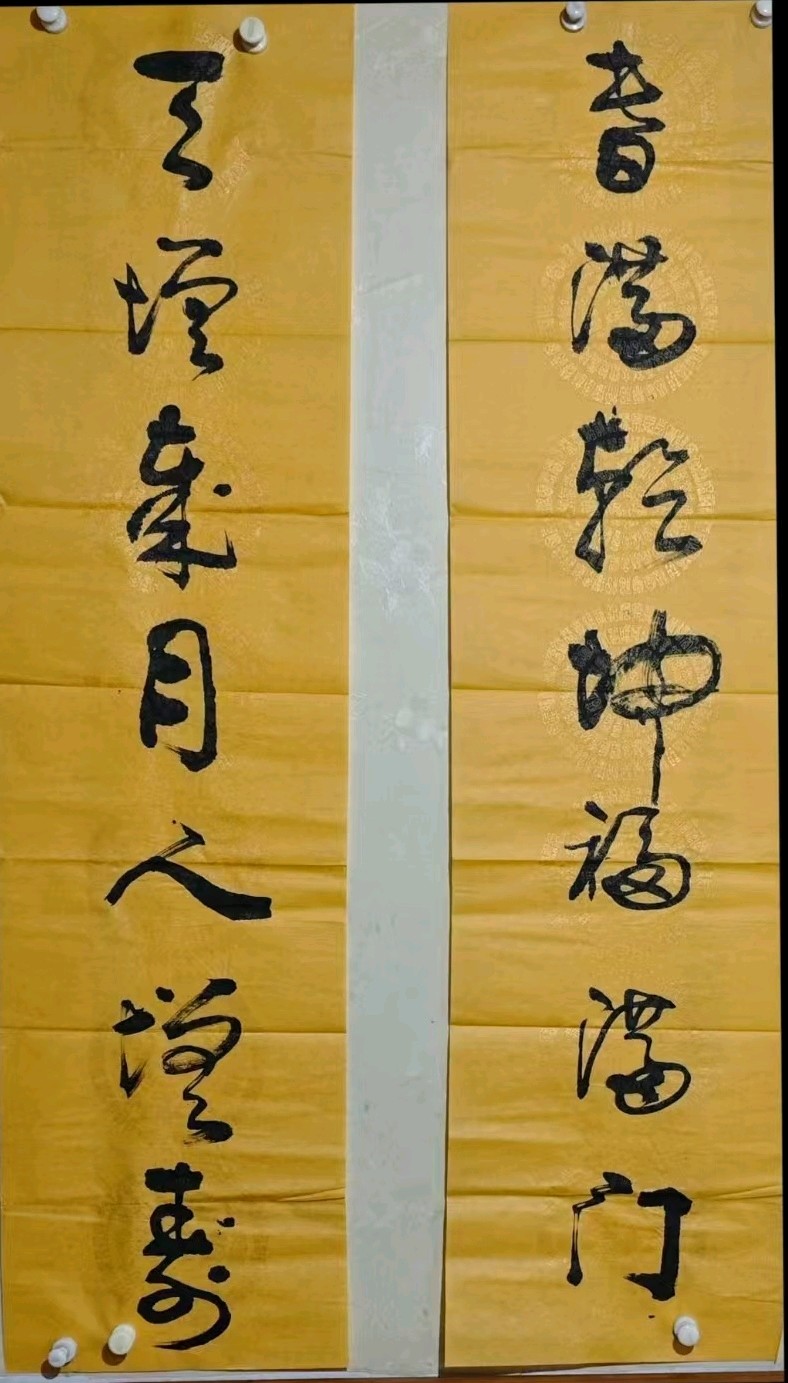 春满乾坤福满门
天增歲月人增寿